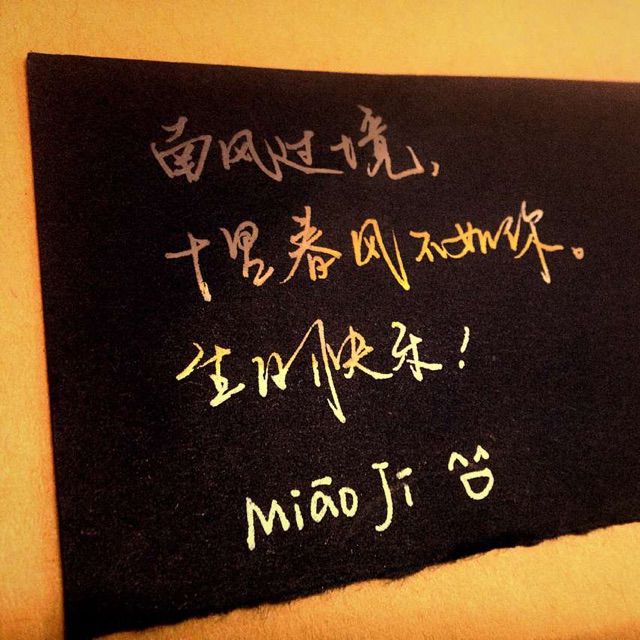 南风过境，
十里春风不如你。
生日快乐！
Miāo Jī